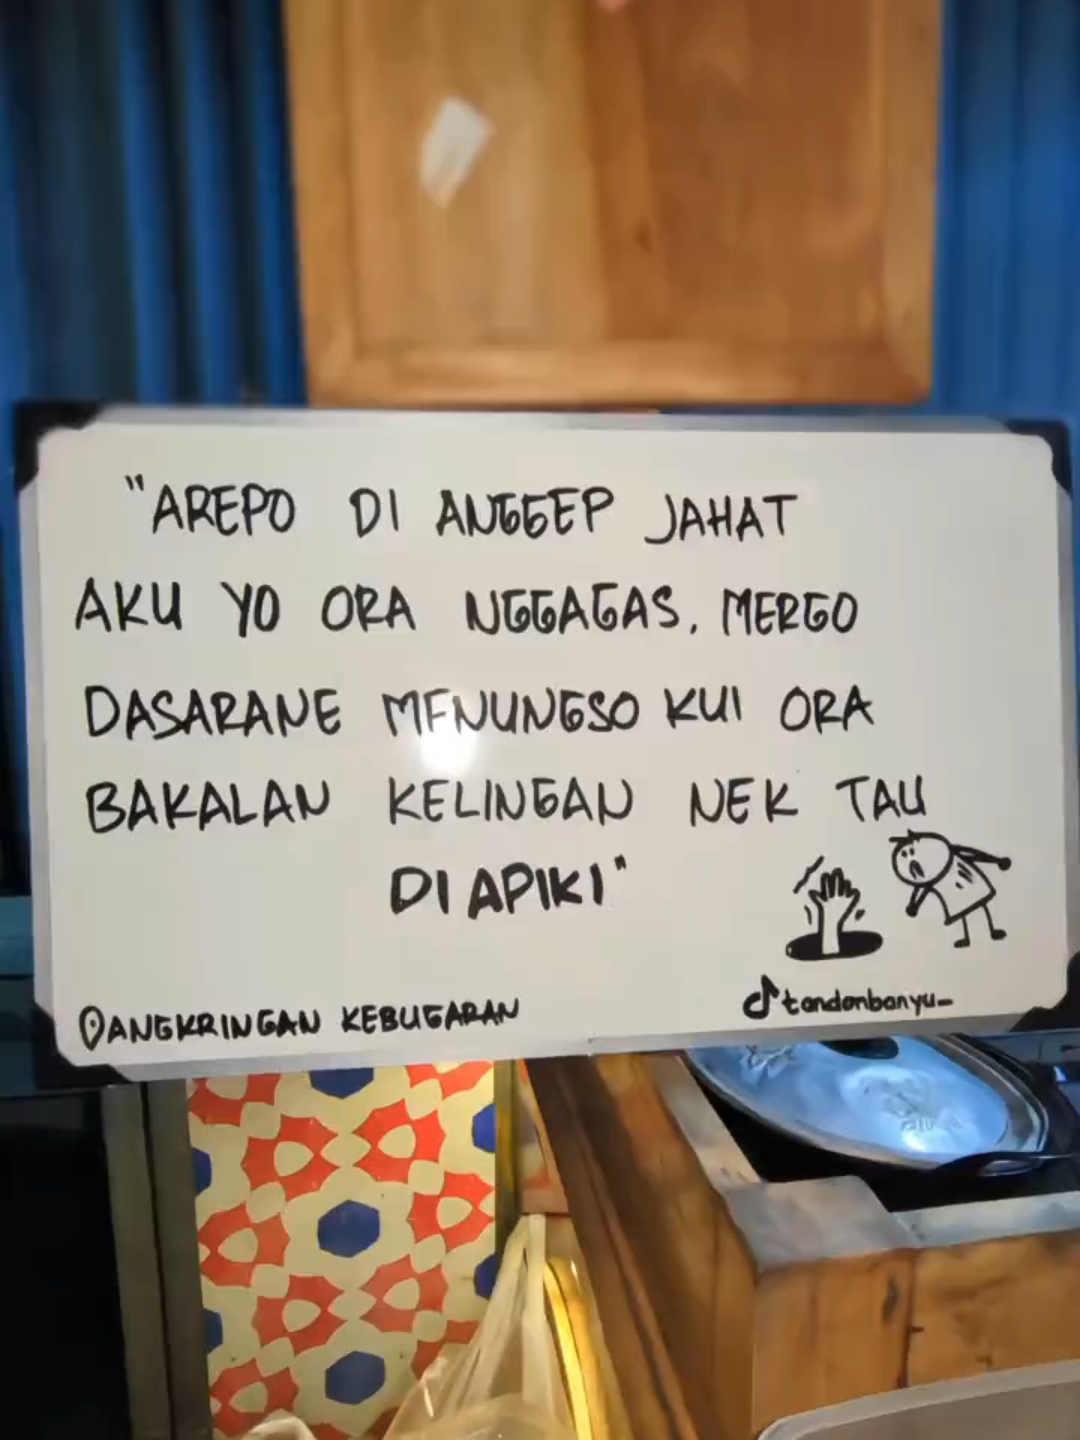 "AREPO DI ANGGEP JAHAT
AKU YO ORA NGGAGAS, MERGO
DASARANE MENUNGSO KUI ORA
BAKALAN KELINGAN NEK TAU
DI APIKI"
ANGKRINGAN KEBUGARAN
tandonbanyu_